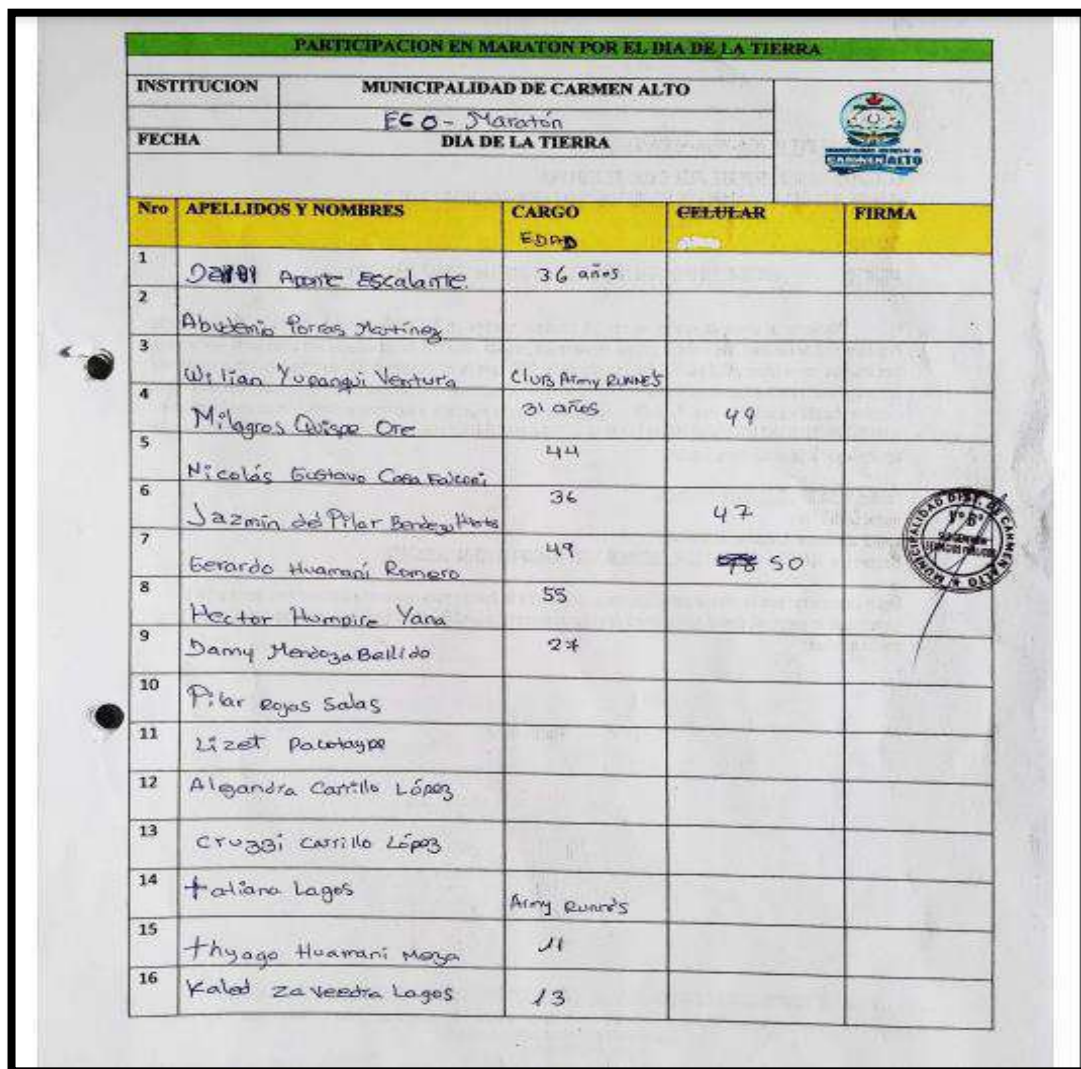 PARTICIPACION EN MARATON POR EL DIA DE LA TIERRA
INSTITUCION MUNICIPALIDAD DE CARMEN ALTO
ECO - Maratón
FECHA DIA DE LA TIERRA
CARMEN ALTO
Nro APELLIDOS Y NOMBRES CARGO CELULAR FIRMA
EDAD
1 Aponte Escalante 36 años
2 Porras Martínez
3 Wilian Yupanqui Ventura Club Army RUNNE'S
4 Milagros Quispe Ore 31 años 49
5 Nicolás Gustavo Casa Falconi 44
6 Jazmín del Pilar 36 47
7 Gerardo Huamaní Romero 49 50
8 Hector Humpire Yana 55
9 Damy Mendoza Bellido 27
10 Pilar Rojas Salas
11 Lizet
12 Alejandra Carrillo López
13 Cruzzi Carrillo López
14 tatiana Lagos Army Runne's
15 thyago Huamaní Meza 11
16 Kaled zaveedra Lagos 13
MUNICIPALIDAD DIST. DE CARMEN ALTO
VºBº